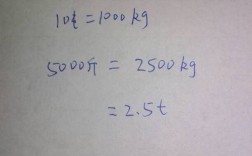 10t=1000kg
5000斤 = 2500kg
=2.5t